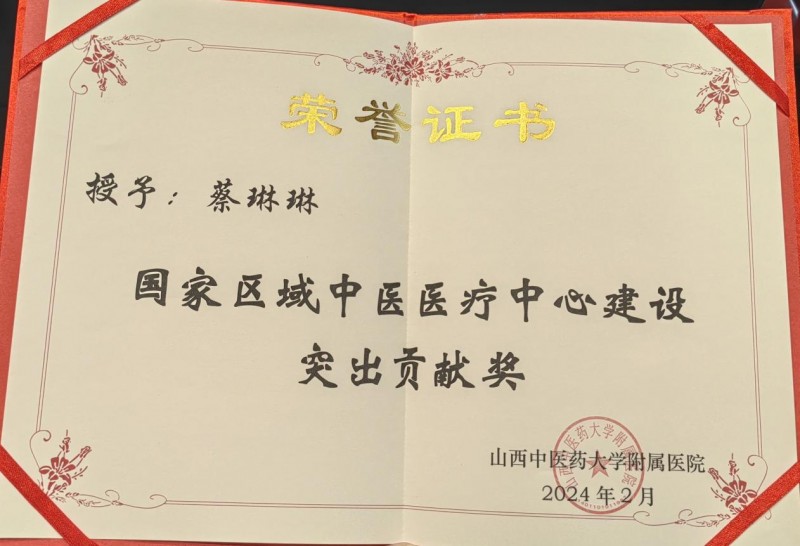 荣誉证书
授予：蔡琳琳
国家区域中医医疗中心建设
突出贡献奖
山西中医药大学附属医院
2024年2月
山西中医药大学附属医院